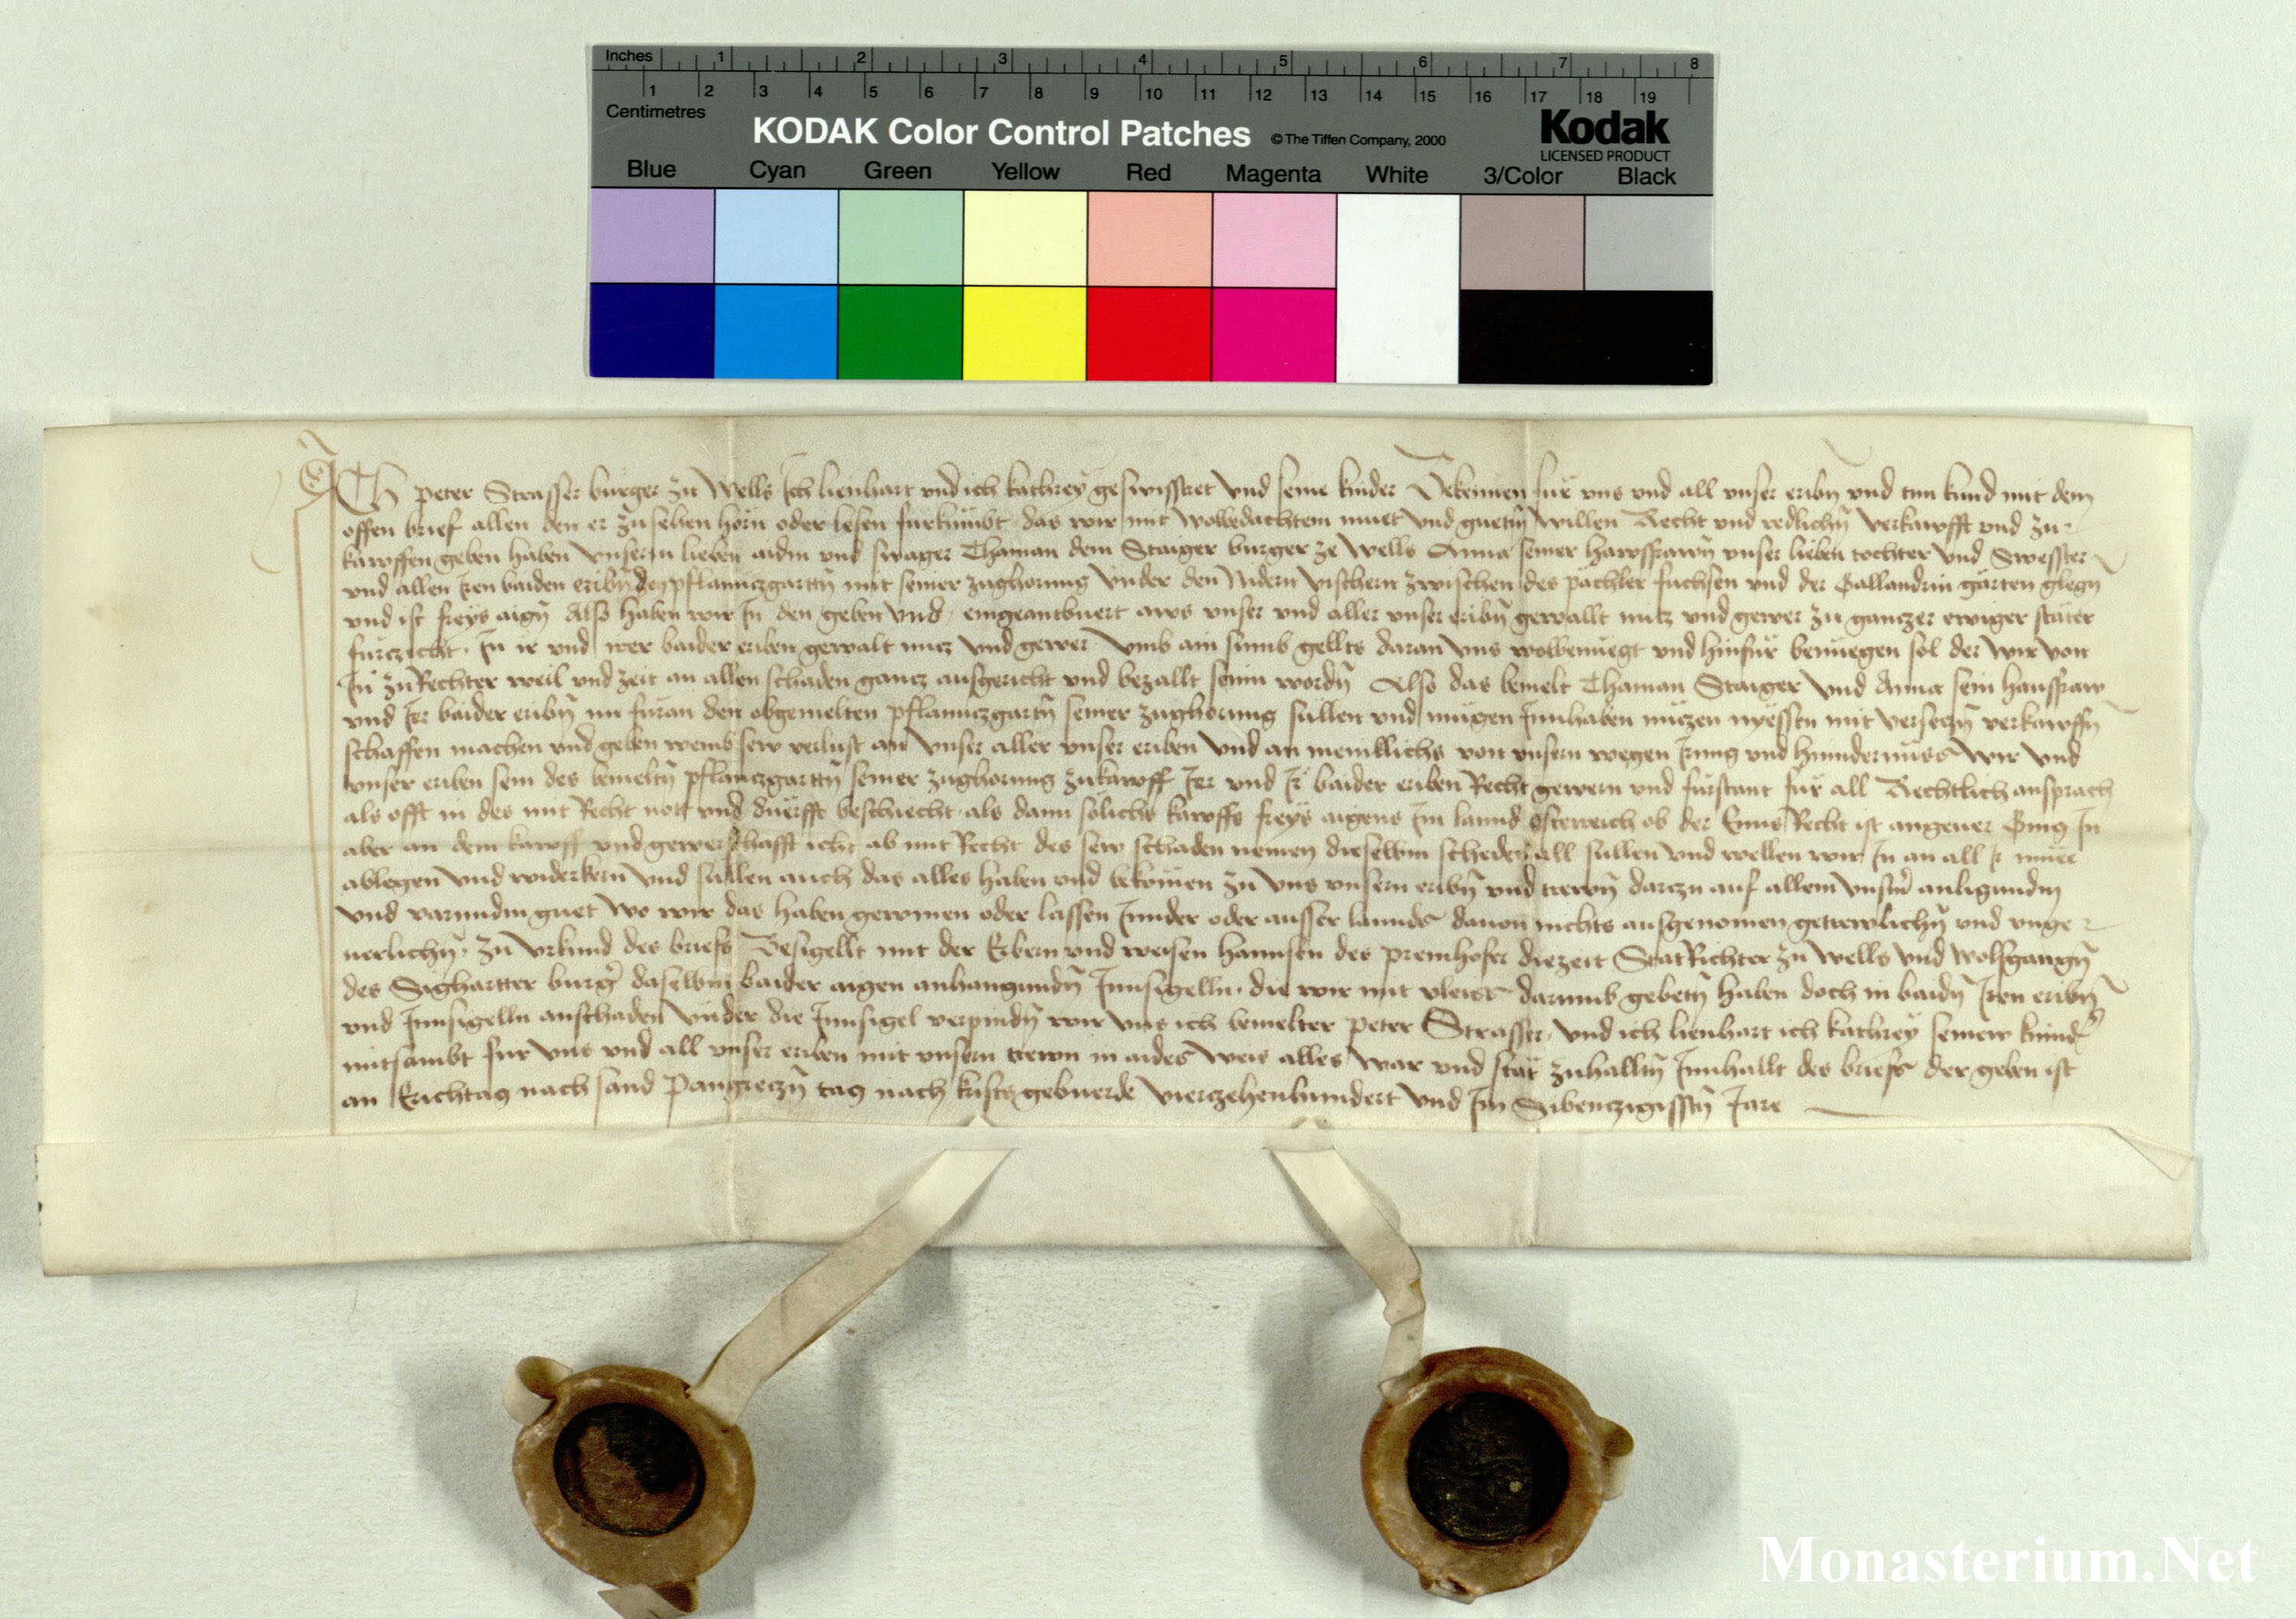 Inches 1 2 3 4 5 6 7 8
1 2 3 4 5 6 7 8 9 10 11 12 13 14 15 16 17 18 19
Centimetres
KODAK Color Control Patches © The Tiffen Company, 2000 Kodak
LICENSED PRODUCT
Blue Cyan Green Yellow Red Magenta White 3/Color Black
ICh peter Strasser burger zu Wells Ich lienhart vnd ich kathrey geswisstret vnd seine kinder Bekennen für vns vnd all vnser eribñ vnd tun kund mit dem
offen brief allen den er zusehen hörn oder lesen furkumbt das wir mit wolbedachtem muet vnd guetm̃ willen Recht vnd redlichñ verkawfft vnd zu
kawffen geben haben vnserm lieben aidm vnd swager Thaman dem Staiger burger ze Wells Anna seiner hawsfrawñ vnser lieben tochter vnd Swesster
vnd allen Iren baiden eribñ den pflannczgarttñ mit seiner zughorung vnder den Nidern vischern zwischen des pächler fuchsen vnd der Gallandrin gärten glegñ
vnd ist freys aigñ Also haben wir In den geben vnd eingeantbuert aws vnser vnd aller vnser eribñ gewallt nutz vnd gewer zu gannczer ewiger stäter
furczicht In ir vnd irer baider eriben gewalt nucz vnd gewer vmb ain sumb gellts daran vns wolbenuegt vnd hinfür benuegen sol der wir von
In zu Rechter weil vnd zeit an allen schaden gancz ausgericht vnd bezallt seinn wordñ Also das bemelt Thaman Staiger vnd Anna sein hausfraw
vnd Ir baider eribñ nu furan den obgemelten pflannczgartñ seiner zughorung sullen vnd mugen Innhaben nuczen nyessen mit verseczñ verkawffñ
schaffen machen vnd geben wemb sew verlust an vnser aller vnser eriben vnd an meniklichs von vnsern wegen Irung vnd hinndernüss wir vnd
vnser eriben sein des bemeltñ pflannczgarttñ seiner zughorung zukawff Ir vnd Ir baider eriben Recht gewern vnd fürstannt für all Rechtlich ansprach
als offt in des mit Recht nott vnd duerfft beschiecht als dann sölichs kawffs freys aigens Im lannd Osterreich ob der Enns Recht ist angeuer Ging In
aber an dem kawff vnd gewerschafft icht ab mit Recht des sew schaden nemen dieselben scheden all sullen vnd wellen wir In an all Ir müee
ablegen vnd widerkern vnd sullen auch das alles haben vnd bekomen zu vns vnsern eribñ vnd trewñ darczu auf allem vnserm anligundm
vnd varundm guet wo wir das haben gewinnen oder lassen Innder oder ausser lannds dauon nichts ausgenomen getrewlichñ vnd vnge
uerlichñ zu vrkund des briefs Besigellt mit der Erbern vnd weisen hannsen des premhofer diezeit StatRichter zu Wells vnd Wolfgangñ
des Sighartter burger daselbm baider aigen anhangundñ Innsigelln die wir mit vleiss darumb gebetñ haben doch in baidñ Iren eribñ
vnd Innsigelln anschaden vnder die Innsigel verpindñ wir vns ich bemelter peter Strasser vnd ich lienhart ich kathrey seinew kinnder
mitsambt fur vns vnd all vnser eriben mit vnsern trewn in aides weis alles war vnd stät zuhalltñ Innhallt des briefs der geben ist
an Erichtag nach sand Pangreczñ tag nach kristi gebuerde vierczehenhundert vnd Im Sibenczigisstñ Jare
Monasterium.Net